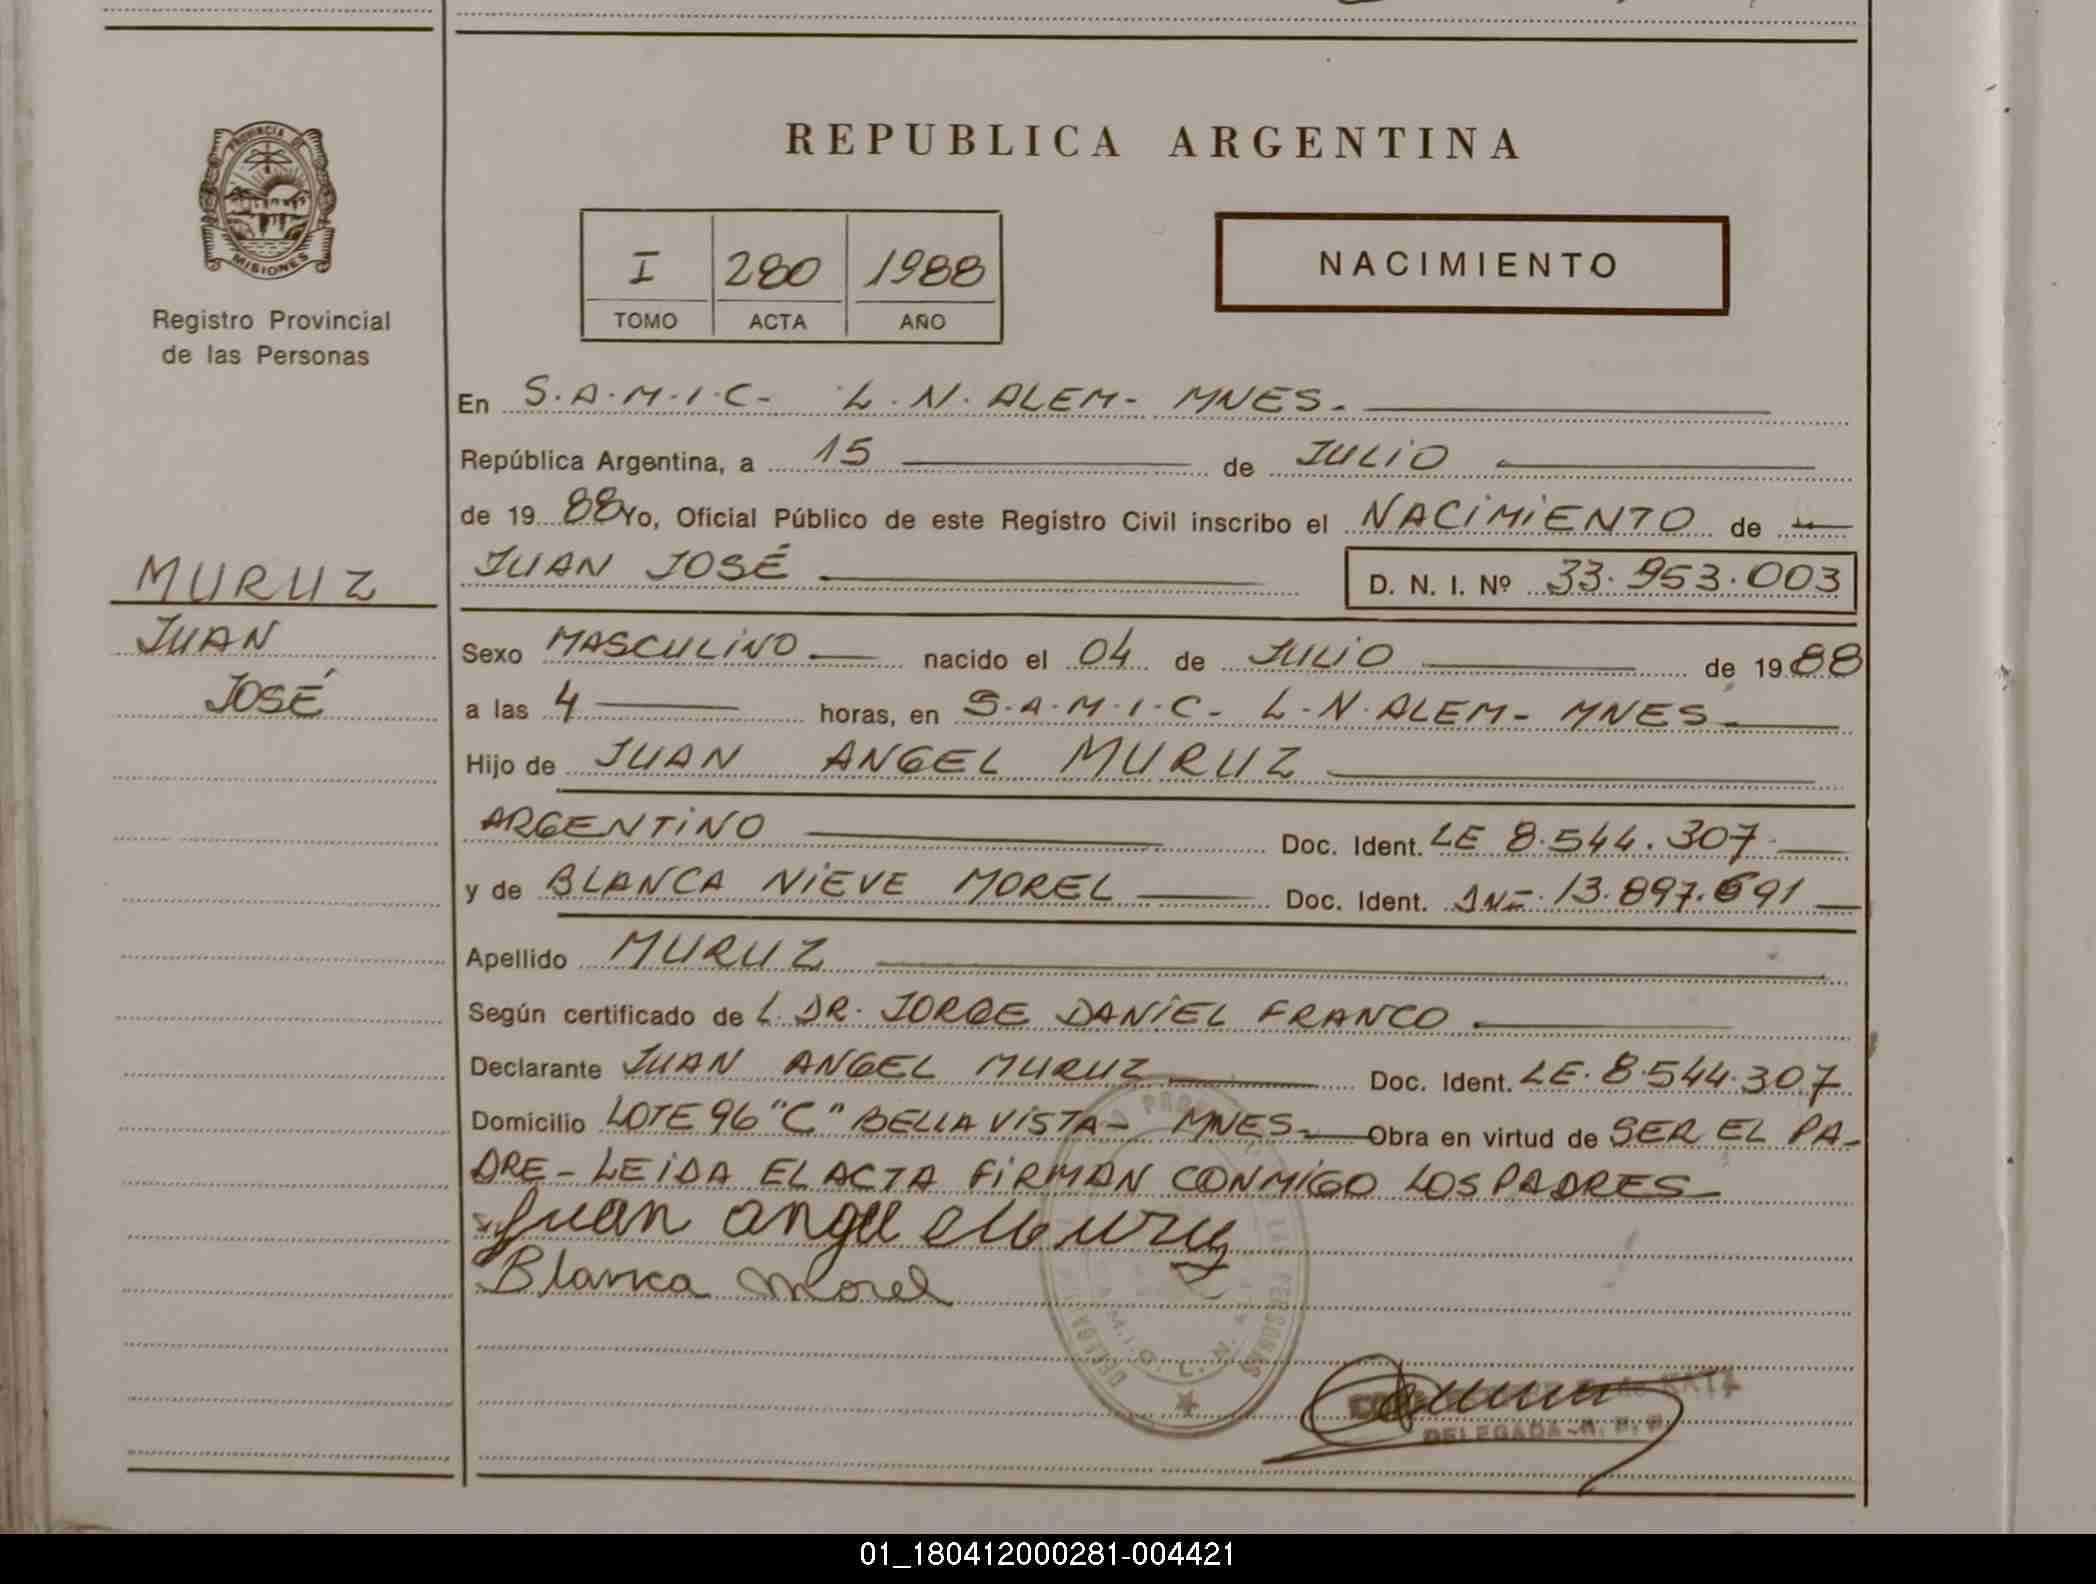 PROVINCIA DE
MISIONES
Registro Provincial
de las Personas
MURUZ
JUAN
JOSÉ
REPUBLICA ARGENTINA
I 280 1988
TOMO ACTA AÑO
NACIMIENTO
En S.A.M.I.C- L.N. ALEM- MNES.
República Argentina, a 15 de JULIO
de 19 88 Yo, Oficial Público de este Registro Civil inscribo el NACIMIENTO de
JUAN JOSÉ D. N. I. Nº 33.953.003
Sexo MASCULINO nacido el 04 de JULIO de 19 88
a las 4 horas, en S.A.M.I.C- L.N. ALEM- MNES
Hijo de JUAN ANGEL MURUZ
ARGENTINO Doc. Ident. LE 8.544.307
y de BLANCA NIEVE MOREL Doc. Ident. 13.897.691
Apellido MURUZ
Según certificado de L. DR. JORGE DANIEL FRANCO
Declarante JUAN ANGEL MURUZ Doc. Ident. LE. 8.544.307
Domicilio LOTE 96 "C" BELLA VISTA- MNES- Obra en virtud de SER EL PA-
DRE - LEIDA EL ACTA FIRMAN CONMIGO LOS PADRES
Juan angel Muruz
Blanca Morel
DELEGADA R. P. P.
01_180412000281-004421